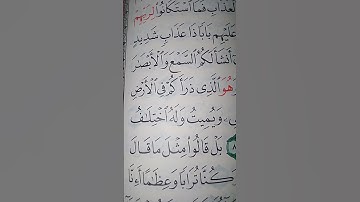 لْعَذَابِ فَمَا ٱسْتَكَانُوا۟ لِرَبِّهِمْ
عَلَيْهِم بَابًا ذَا عَذَابٍ شَدِيدٍ
أَنشَأَ لَكُمُ ٱلسَّمْعَ وَٱلْأَبْصَٰرَ
هُوَ ٱلَّذِى ذَرَأَكُمْ فِى ٱلْأَرْضِ
ىِۦ وَيُمِيتُ وَلَهُ ٱخْتِلَٰفُ
بَلْ قَالُوا۟ مِثْلَ مَا قَالَ
كُنَّا تُرَابًا وَعِظَٰمًا أَءِنَّا